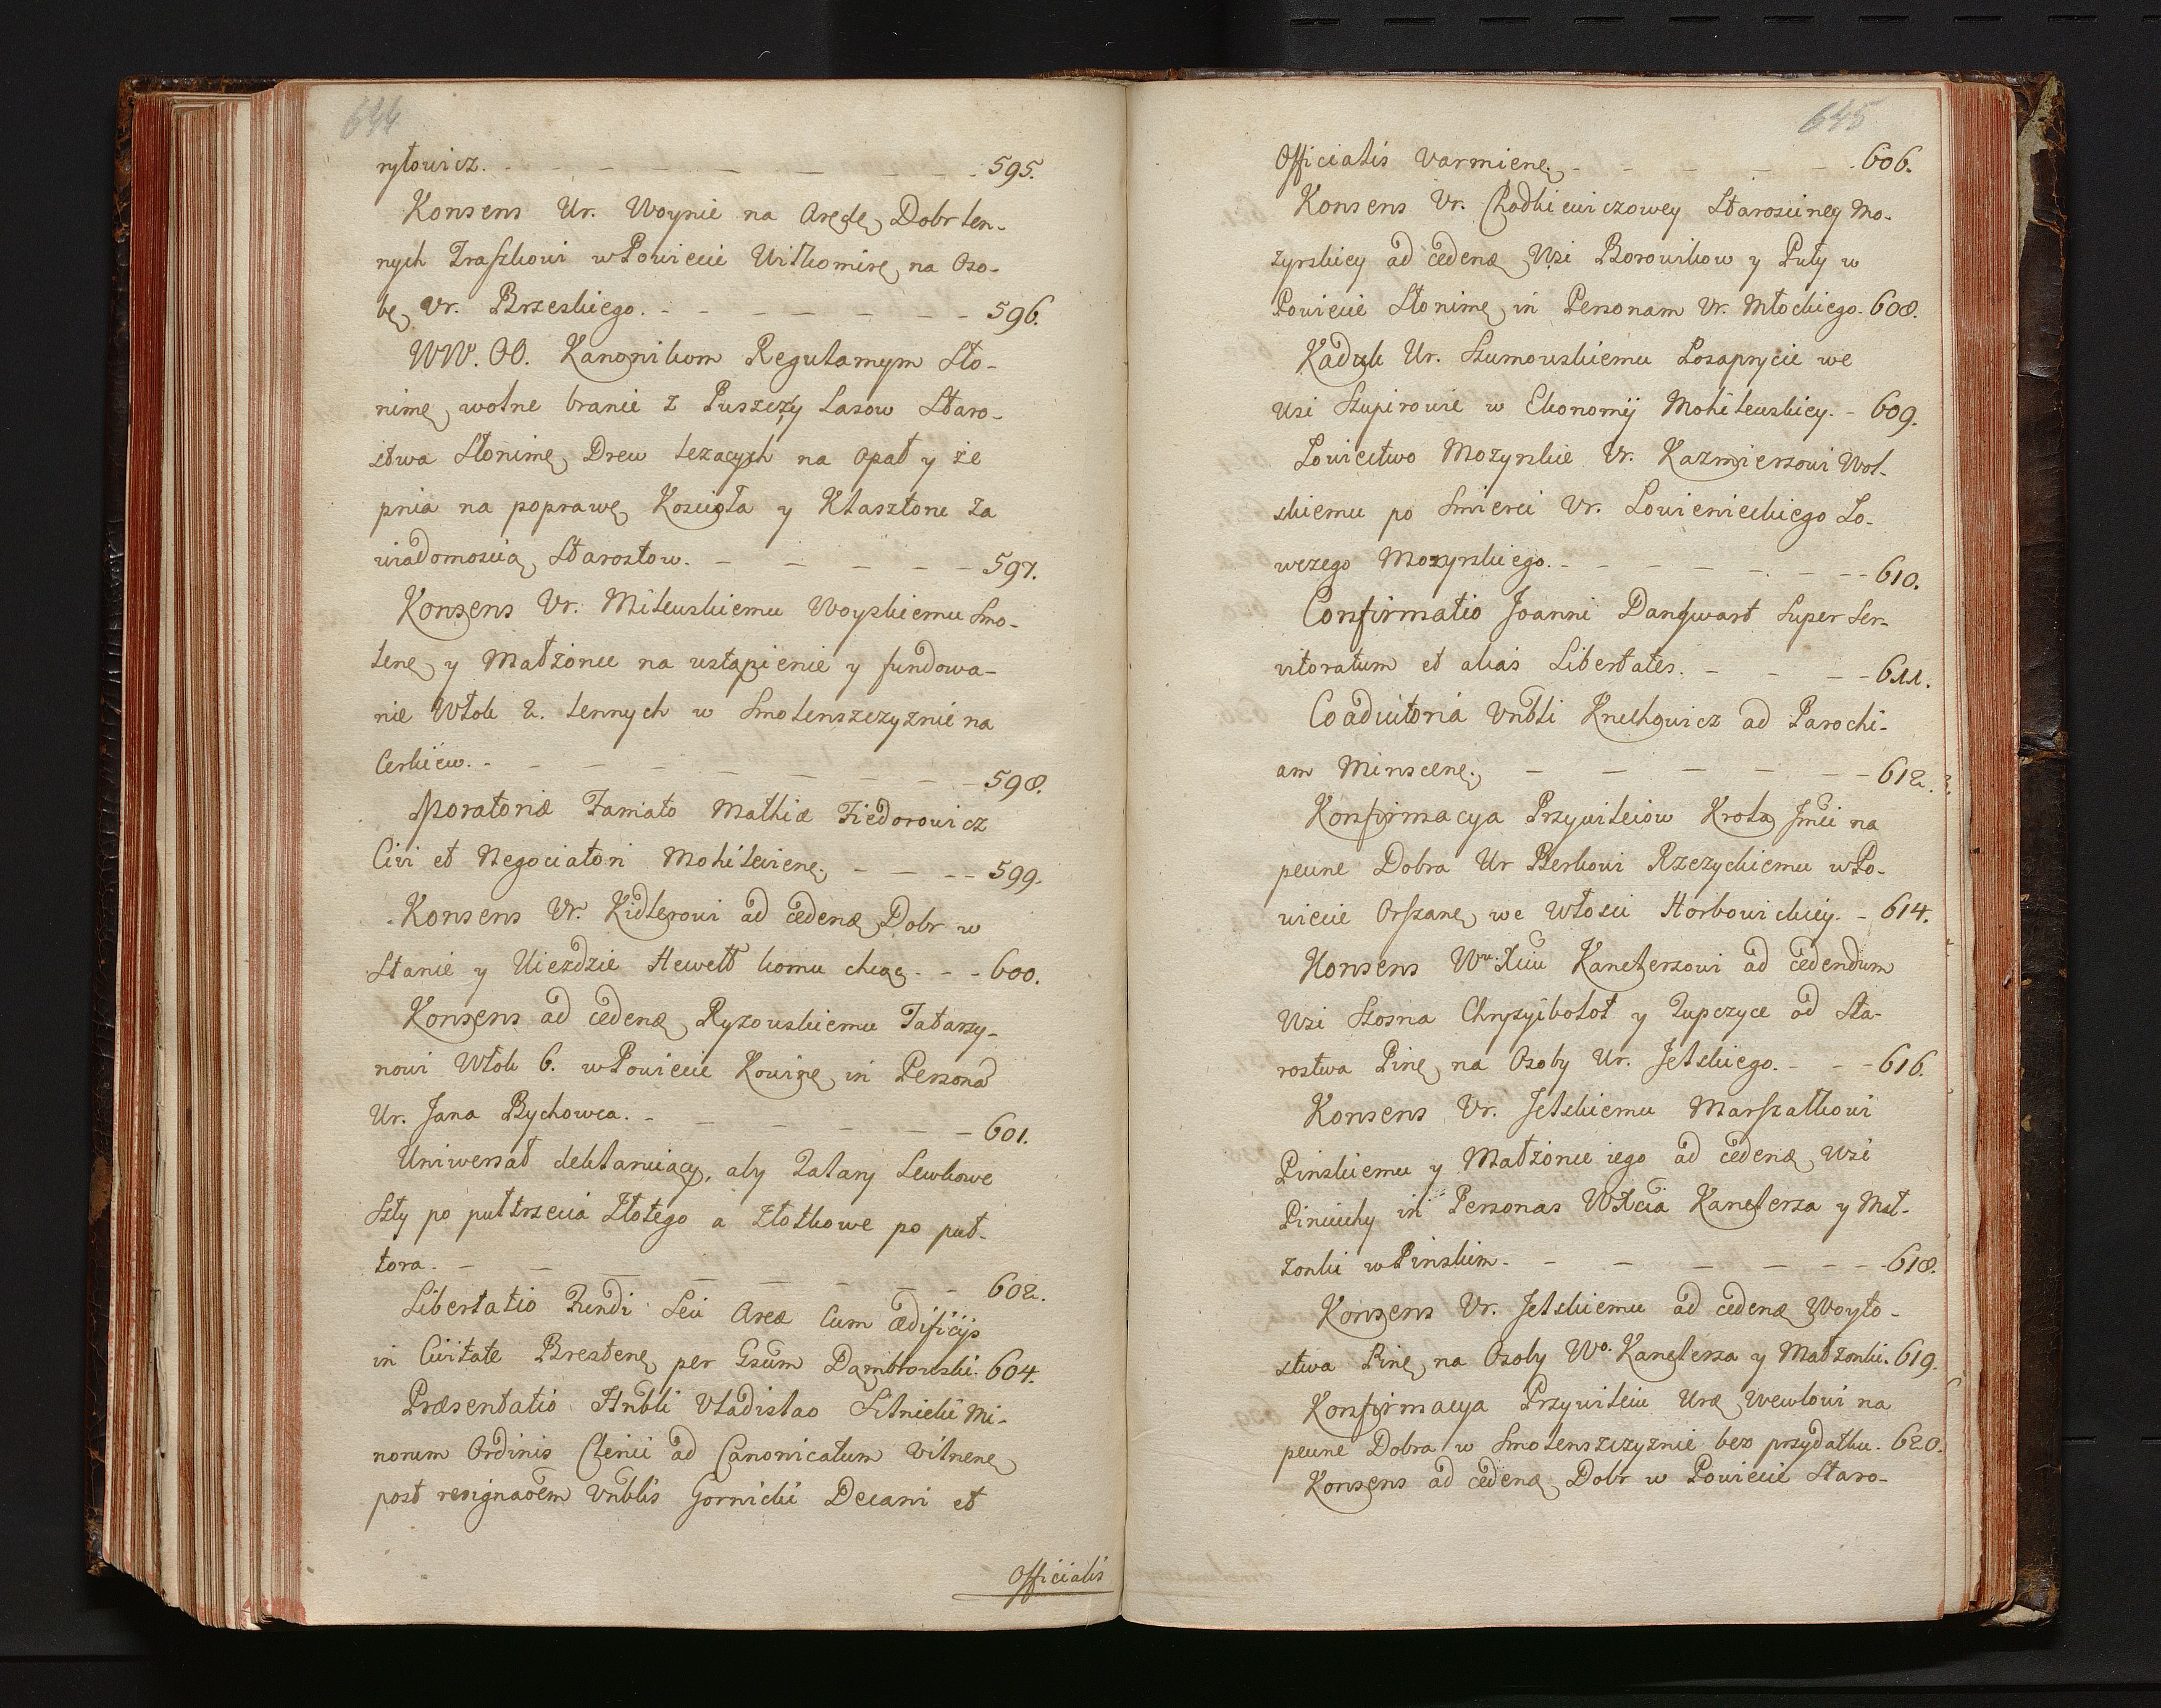 644
ryłowicz. - - - - - - - 595.
Konsens Ur. Woynie na Arędę Dobr len-
nych Traszkowi w Powiecie Wiłkomirę na Oso-
bę Vr. Brzeskiego. - - - - - - 596.
WW. OO. Kanonikom Regularnym Sło-
nimę wolne branie z Puszczy Lasow Staro-
stwa Słonimę Drew lezacych na Opał y że
pnia na poprawę Koscioła y Klasztoru za
wiadomoscią Starostow. - - - - - 597.
Konsens Vr. Milewskiemu Woyskiemu Smo-
lenę y Małżonce na ustąpienie y fundowa-
nie Włok 2. lennych w Smolenszczyznie na
Cerkiew. - - - - - - - 598.
Moratoriæ Famato Mathiæ Fiedorowicz
Civi et Negociatori Mohilevienę. - - - 599.
Konsens Vr. Kidlerowi ad cedenđ Dobr w
Stanie y Uiezdzie Hewelt komu chcąc - - - 600.
Konsens ad cedenđ Ryzowskiemu Tatarzy-
nowi Włok 6. w Powiecie Kowinę in Personā
Ur. Jana Bychowca. - - - - - - 601.
Uniwersał deklaruiący, aby Talary Lewkowe
Szły po pułtrzecia Złotego a Złotkowe po puł-
tora. - - - - - - - 602.
Libertatio Fundi Seu Areæ Cum ædificijs
in Civitate Brestenę per Gsum Dąmbrowski. 604.
Præsentatio Hnbli Vladislao Silnicki Mi-
norum Ordinis Clerici ad Canonicatum Vilnenę
post resignaōem Vnblis Gornicki Decani et
Officialis
645
Officialis Varmienę. - - - - - 606.
Konsens Vr. Chodkiewiczowey Starościney Mo-
zyrskiey ad cedenđ Wsi Borowikow y Puły w
Powiecie Słonimę in Personam Vr. Młockiego. 608.
Kaduk Ur. Szumowskiemu Posaprycie we
Wsi Szupirowie w Ekonomij Mohilewskiey. - 609.
Łowiectwo Mozyrskie Vr. Kazmierzowi Wol-
skiemu po Smierci Vr. Łowienieckiego Ło-
wczego Mozyrskiego. - - - - - - 610.
Confirmatio Joanni Danqwart Super Ser-
vitoratum et alias Libertates. - - - - 611.
Coadiutoria Vnbli Knelhowicz ad Parochi-
am Minscenę. - - - - - - 612.
Konfirmacya Przywileiow Krola Jmći na
pewne Dobra Ur Berkowi Rzeczyckiemu w Po-
wiecie Orszanę we Włości Horbowickiey. - 614.
Konsens Wu. Xciu Kanclerzowi ad cedendum
Wsi Szosna Chrzyibołot y Zupczyce od Sta-
rostwa Pinę na Osoby Ur. Jelskiego. - - - 616.
Konsens Vr. Jelskiemu Marszałkowi
Pinskiemu y Małżonce iego ad cedenđ Wsi
in Personas WXcia Kanclerza y Mał-
zonki w Pinskim. - - - - - - 618.
Konsens Vr. Jelskiemu ad cedenđ Woyto-
stwa Pinę na Osoby Wo. Kanclerza y Małzonki. 619.
Konfirmacya Przywileiu Urę Wewlowi na
pewne Dobra w Smolenszczyznie bez przydatku. 620.
Konsens ad cedenđ Dobr w Powiecie Staro-